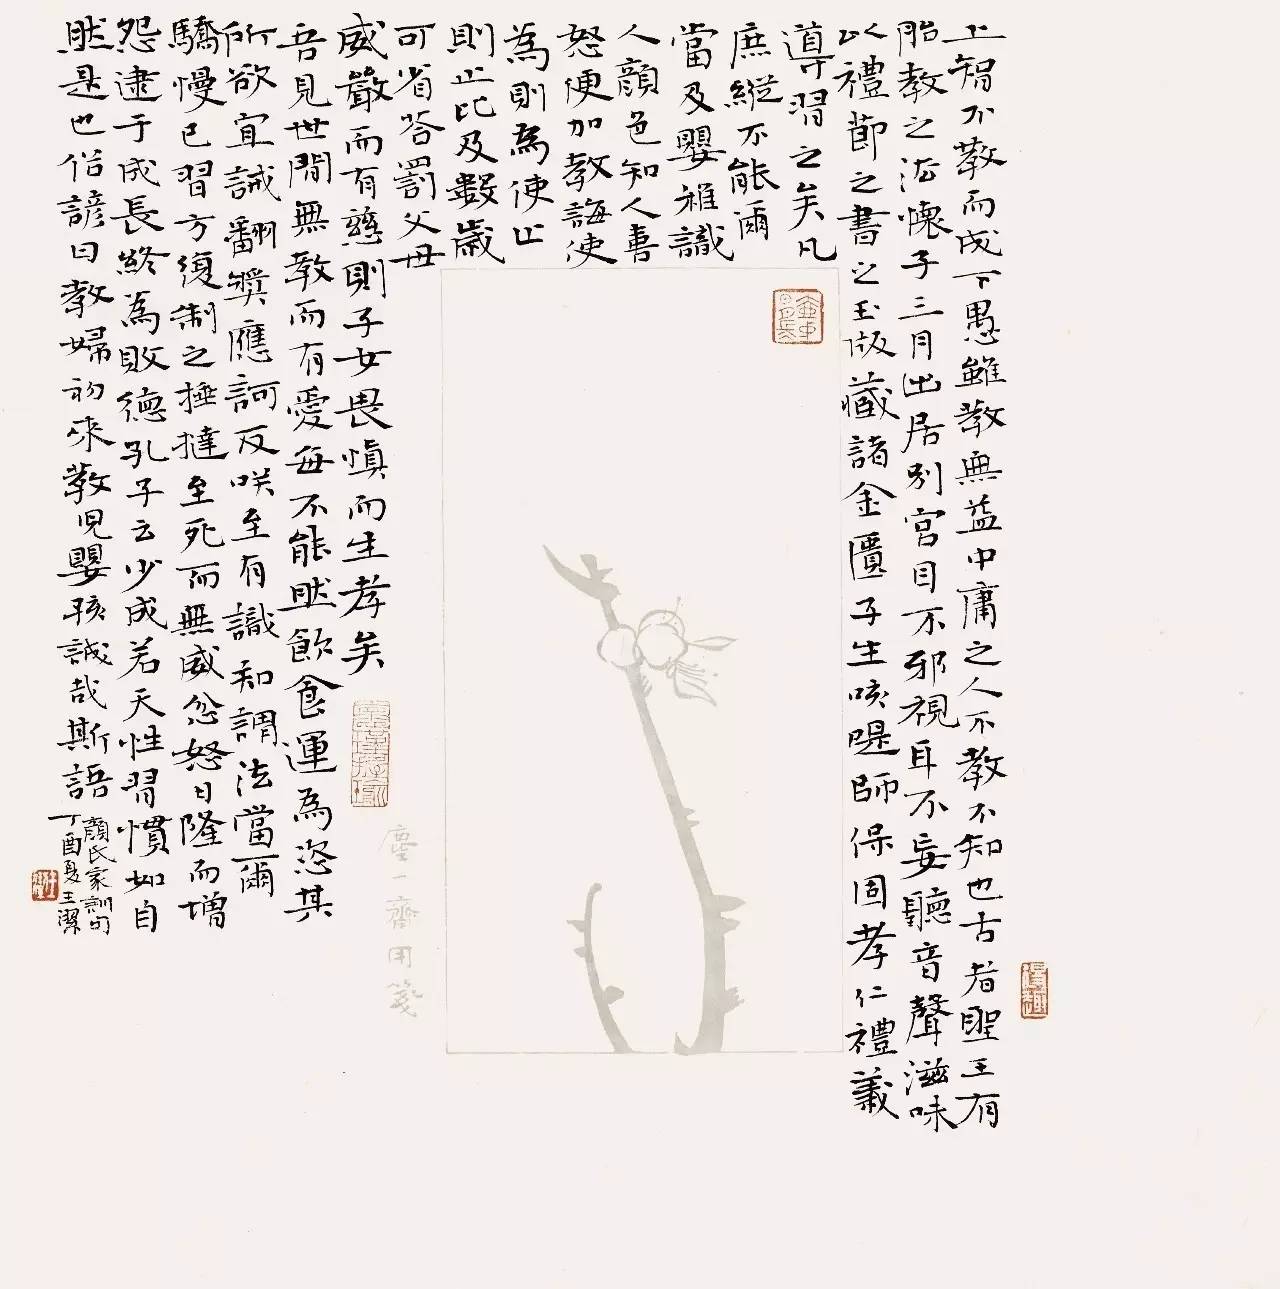 上智不教而成下愚雖教無益中庸之人不教不知也古者聖王有
胎教之法懷子三月出居別宮目不邪視耳不妄聽音聲滋味
以禮節之書之玉版藏諸金匱子生咳㖷師保固孝仁禮義
導習之矣凡
庶縱不能爾
當及嬰稚識
人顏色知人喜
怒便加教誨使
為則為使止
則止比及數歲
可省笞罰父母
威嚴而有慈則子女畏慎而生孝矣
吾見世間無教而有愛每不能然飲食運為恣其
所欲宜誡翻獎應訶反咲至有識知謂法當爾
驕慢已習方復制之捶撻至死而無威忿怒日隆而增
怨逮于成長終為敗德孔子云少成若天性習慣如自
然是也俗諺曰教婦初來教兒嬰孩誠哉斯語
顏氏家訓句
丁酉夏王潔
塵一齋用箋